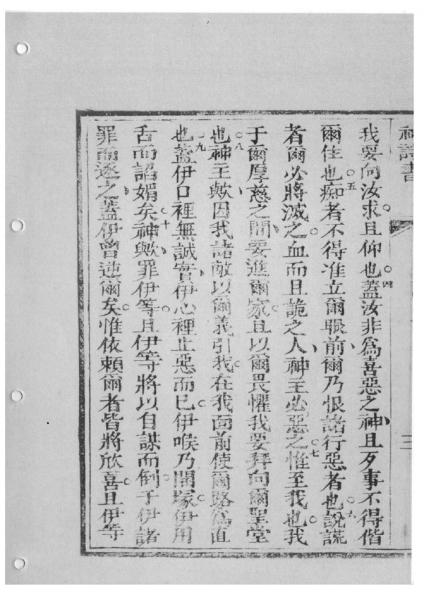 神詩書
三
我要向汝求且仰也四蓋汝非爲喜惡之神且歹事不得偕
爾住也五痴者不得准立爾眼前爾乃恨諸行惡者也六說謊
者爾必將滅之血而且詭之人神主必惡之七惟至我也我
于爾厚慈之間要進爾家且以爾畏懼我要拜向爾聖堂
也八神主歟因我諸敵以爾義引我在我面前使爾路爲直
也九蓋伊口裡無誠實伊心裡止惡而已伊喉乃開塚伊用
舌而諂媚矣十神歟罪伊等且伊等將以自謀而倒于伊諸
罪而逐之蓋伊曾逆爾矣惟依頼爾者皆將欣喜且伊等